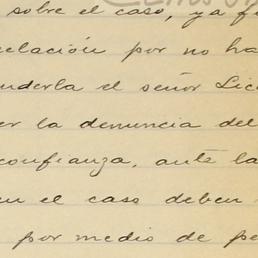 sobre el caso, ya f
elación por no ha
nderla el señor Lic
er la denuncia del
confianza, ante la
en el caso deben
por medio de pe